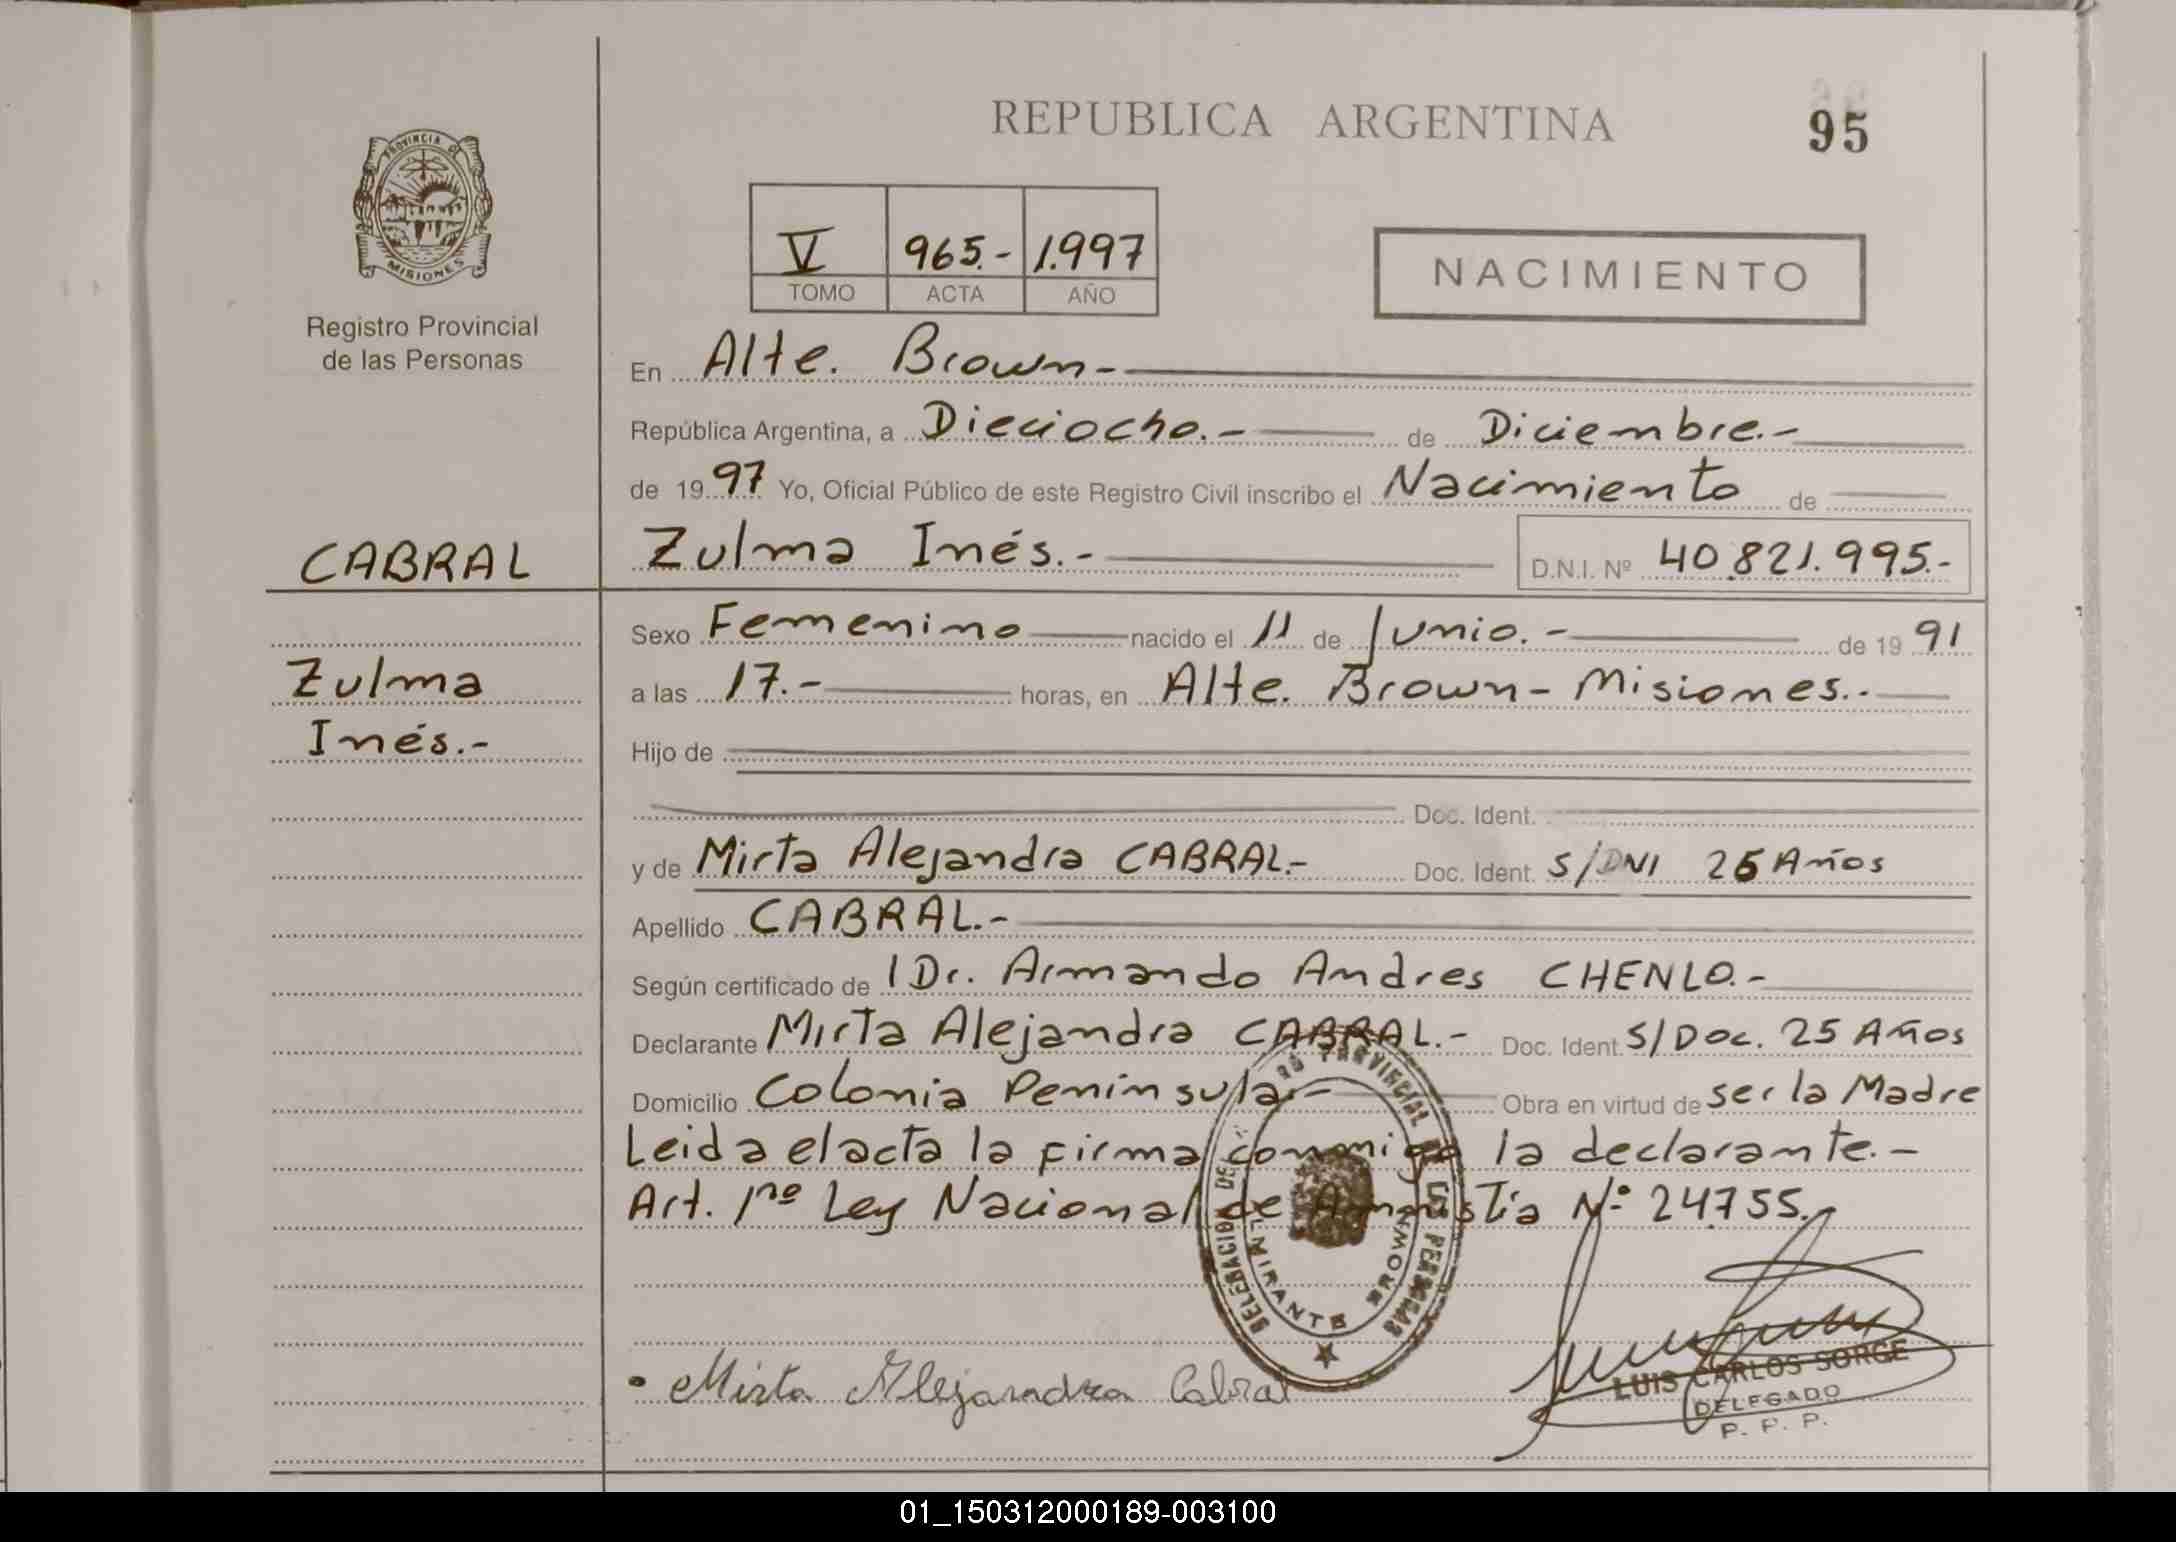 REPUBLICA ARGENTINA
95
PROVINCIA DE
MISIONES
Registro Provincial
de las Personas
V 965.- 1.997
TOMO ACTA AÑO
NACIMIENTO
En Alte. Brown.-
República Argentina, a Dieciocho.- de Diciembre.-
de 1997 Yo, Oficial Público de este Registro Civil inscribo el Nacimiento de
CABRAL
Zulma Inés.- D.N.I. Nº 40.821.995.-
Sexo Femenino nacido el 11 de Junio.- de 1991
Zulma
a las 17.- horas, en Alte. Brown- Misiones.-
Inés.-
Hijo de
Doc. Ident.
y de Mirta Alejandra CABRAL.- Doc. Ident. S/DNI 25 Años
Apellido CABRAL.-
Según certificado de Dr. Armando Andres CHENLO.-
Declarante Mirta Alejandra CABRAL.- Doc. Ident. S/Doc. 25 Años
Domicilio Colonia Penínsular.- Obra en virtud de ser la Madre
Leida el acta la firma conmigo la declarante.-
Art. 1rº Ley Nacional de Amnistía Nº 24.755.-
DELEGACION DE PROVINCIAL DE LAS PERSONAS
ALMIRANTE BROWN
Mirta Alejandra Cabral
LUIS CARLOS SORGE
DELEGADO
P. P. P.
01_150312000189-003100